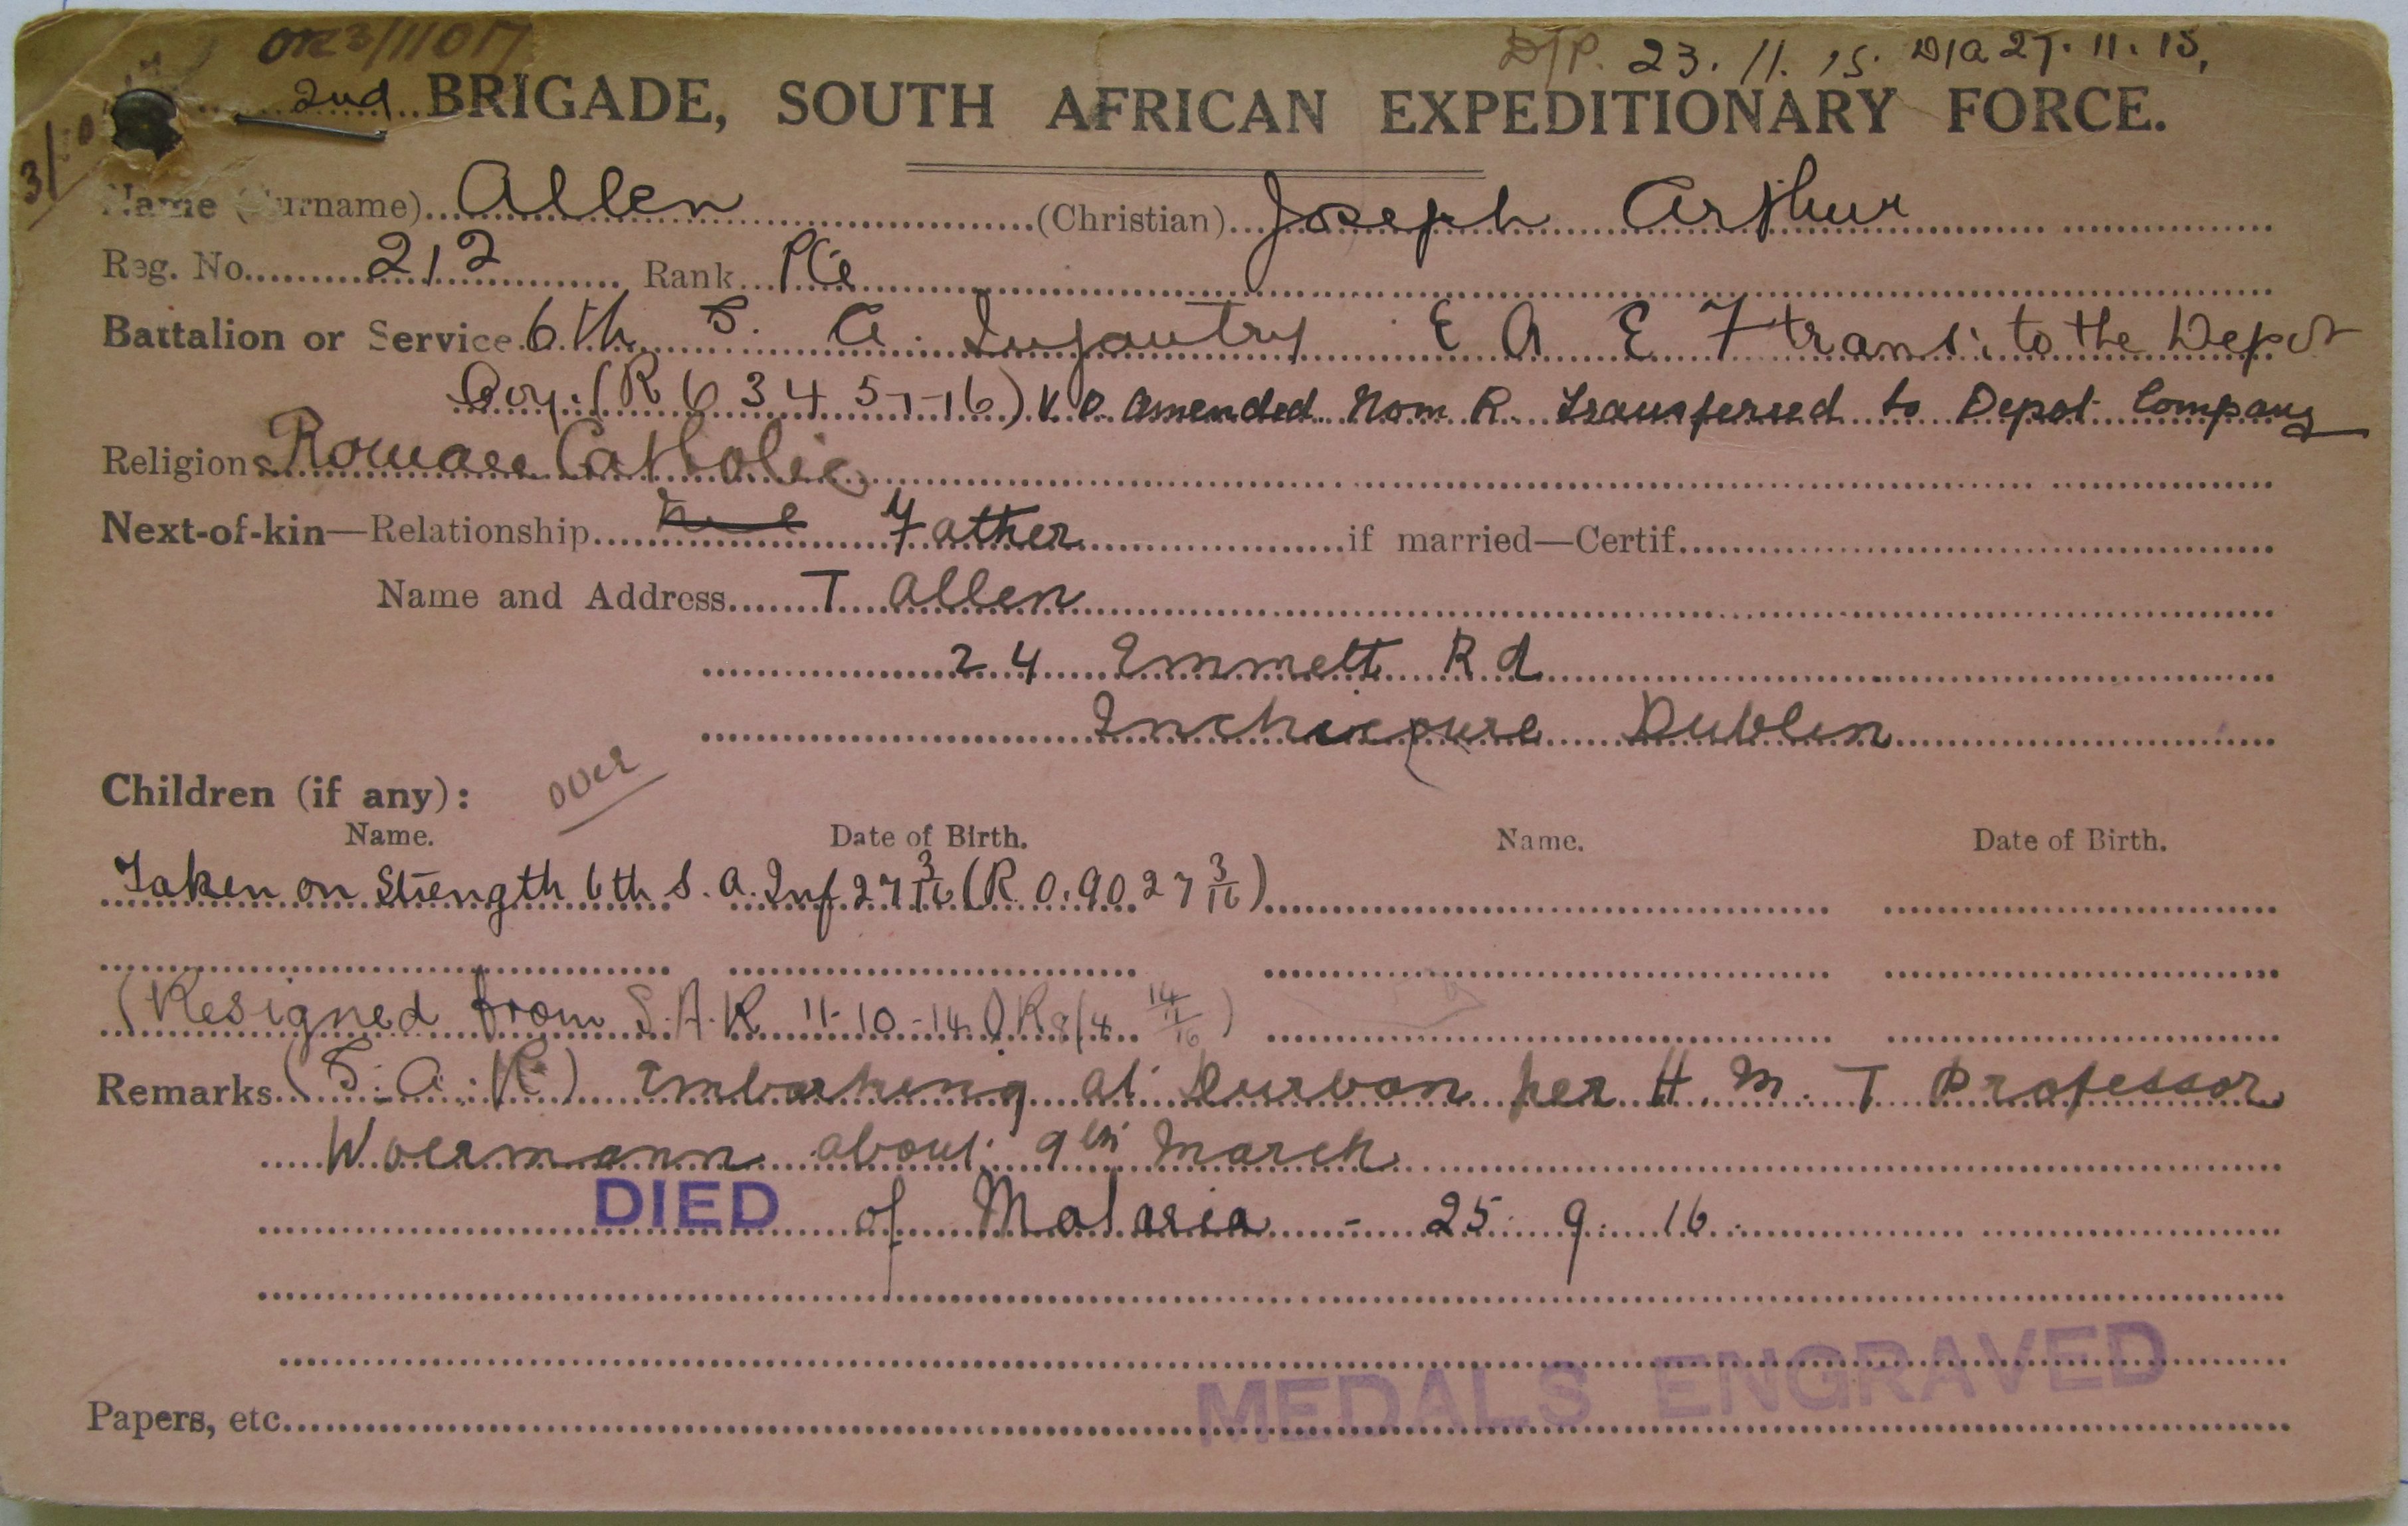 OR3/11017
D/P. 23.11.15. D/A 27.11.15,
2nd BRIGADE, SOUTH AFRICAN EXPEDITIONARY FORCE.
Name (Surname) Allen (Christian) Joseph Arthur
Reg. No. 212 Rank Pte
Battalion or Service 6th S. A. Infantry E A E F trans: to the Depot
Coy. (R 6 3 4 5-1-16) V.O. Amended Nom R. transferred to Depot Company
Religion Roman Catholic
Next-of-kin—Relationship Father if married—Certif.
Name and Address T Allen
24 Emmett Rd
Inchicpure Dublin
over
Children (if any):
Name. Date of Birth. Name. Date of Birth.
Taken on Strength 6th S.A. Inf 27 3/16 (R.O. 90 27 3/16)
(Resigned from S.A.R 11-10-14.
Remarks (S.A.R) Embarking at Durban per H.M.T Professor
Woermann about 9th March
DIED of Malaria - 25. 9. 16.
MEDALS ENGRAVED
Papers, etc.